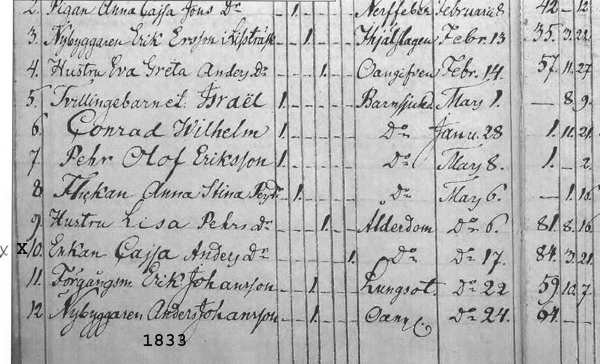 2. Pigan Anna Cajsa Jons Dr 1. Nerffeber Februarii 8. 42 — 12
3. Nybyggaren Erik Ersson i 1. Ihjälslagen Febr. 13 35. 3. 22
4. Hustru Eva Greta Anders Dr 1. Oangifven Febr. 14. 57. 11. 27
5. Tvillingebarnet Israël 1. Barnsjuka May 1. — 8. 9.
6. Conrad Wilhelm 1. Do Janu. 28 1. 11. 21.
7. Pehr Olof Eriksson 1. Do May 8. 1. — 2.
8. Flickan Anna Stina 1. Do May 6. — 1. 16
9. Hustru Lisa Pehrs Dr 1. Alderdom Do 6. 81. 8. 16
x X 10. Enkan Cajsa Anders Dr 1. Do Do 17. 84. 3. 21.
11. Förgångsm Erik Johansson 1. Lungsot. Do 22 59 10. 7.
12. Nybyggaren Anders Johansson 1. Do 24. 64. —
1833